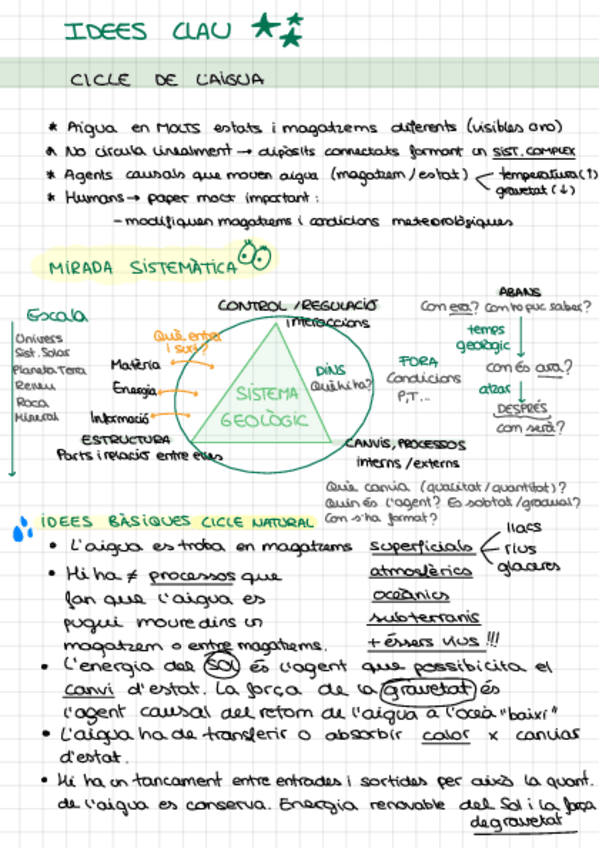 IDEES CLAU
CICLE DE L'AIGUA
* Aigua en MOLTS estats i magatzems diferents (visibles o no)
* No circula linealment → dipòsits connectats formant un SIST. COMPLEX
* Agents causals que mouen aigua (magatzem/estat) temperatura (↑)
gravetat (↓)
* Humans → paper molt important:
- modifiquen magatzems i condicions meteorològiques
MIRADA SISTEMÀTICA
Escala
Univers
Sist. Solar
Planeta Terra
Relleu
Roca
Mineral
CONTROL / REGULACIÓ
interaccions
Què entra
i surt?
Matèria
Energia
Informació
SISTEMA
GEOLÒGIC
DINS
Què hi ha?
FORA
Condicions
P, T...
ESTRUCTURA
Parts i relació entre elles
CANVIS, PROCESSOS
interns / externs
ABANS
Com era? Com ho puc saber?
temps
geològic
com és ara?
atzar
DESPRÉS
com serà?
Què canvia (qualitat / quantitat)?
Quin és l'agent? És sobtat / gradual?
Com s'ha format?
IDEES BÀSIQUES CICLE NATURAL
• L'aigua es troba en magatzems superficials
llacs
rius
glaceres
atmosfèrics
oceànics
subterranis
+ éssers vius !!!
• Hi ha ≠ processos que
fan que l'aigua es
pugui moure dins un
magatzem o entre magatzems.
• L'energia del SOL és l'agent que possibilita el
canvi d'estat. La força de la gravetat és
l'agent causal del retorn de l'aigua a l'oceà "baixi"
• L'aigua ha de transferir o absorbir calor x canviar
d'estat.
• Hi ha un tancament entre entrades i sortides per això la quant.
de l'aigua es conserva. Energia renovable del Sol i la força
de gravetat